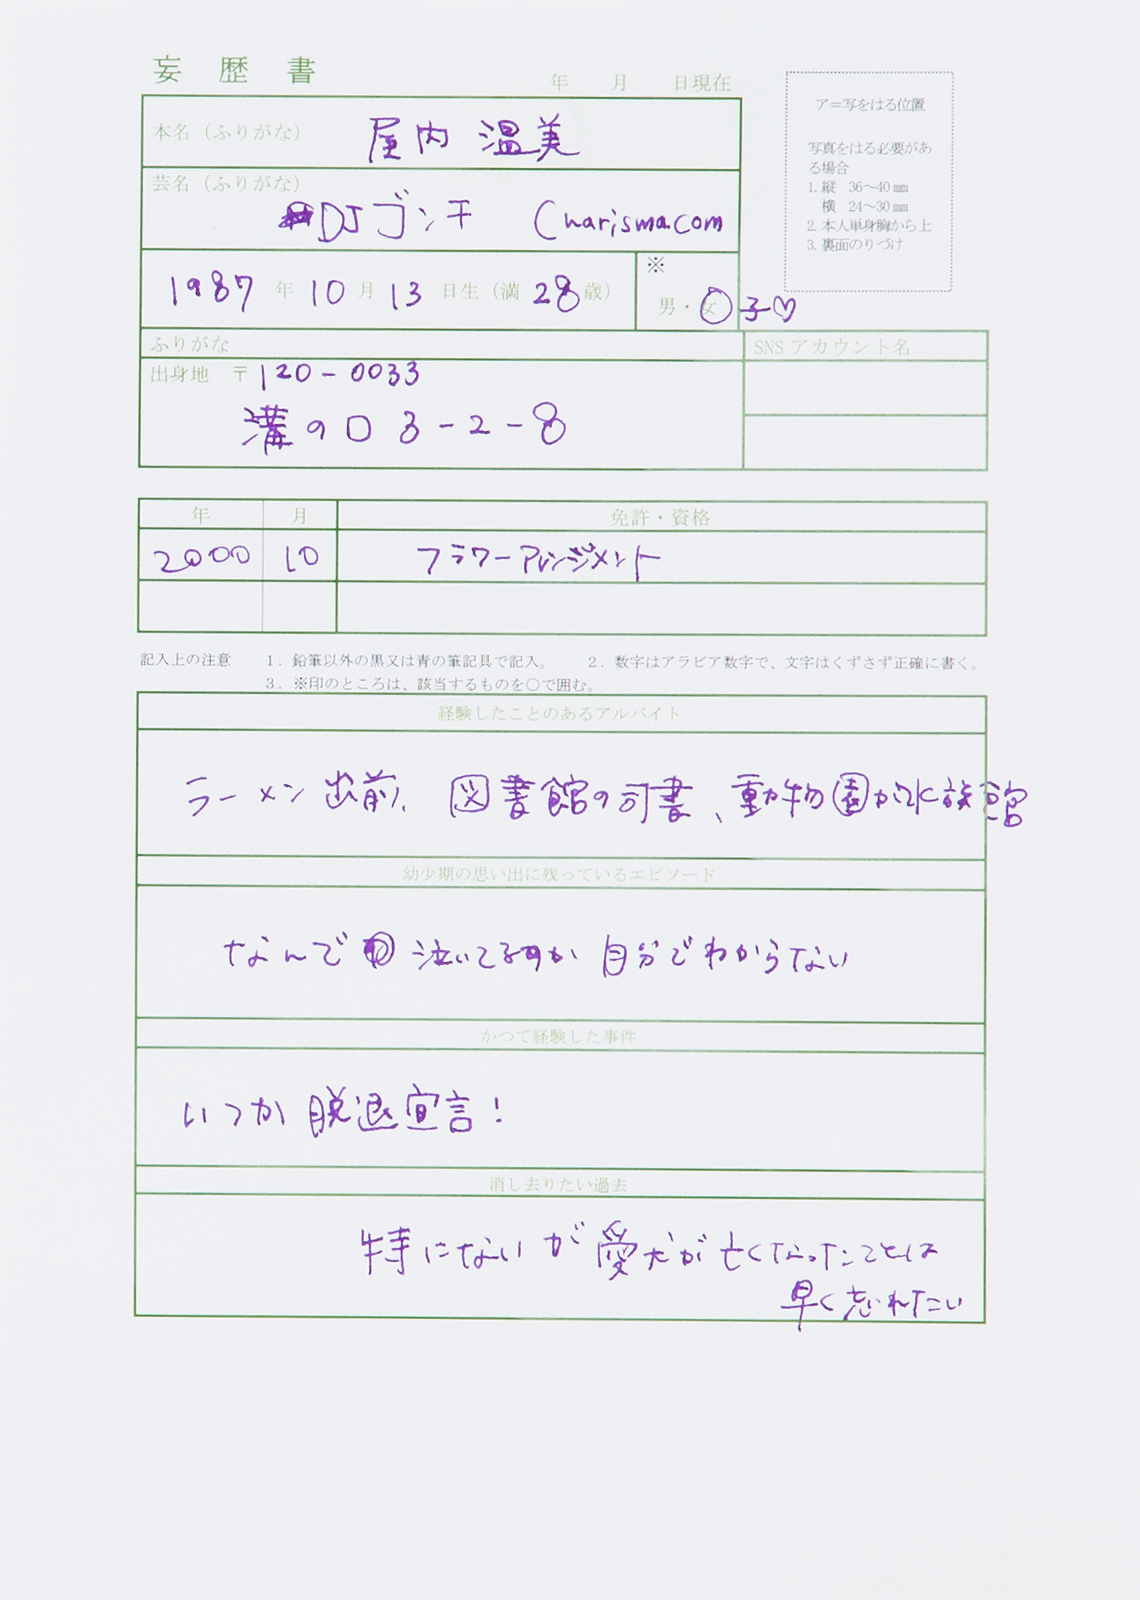 妄歴書
年 月 日現在
ア=写をはる位置
写真をはる必要があ
る場合
1. 縦 36〜40mm
横 24〜30mm
2. 本人単身胸から上
3. 裏面のりづけ
本名(ふりがな) 屋内 温美
芸名(ふりがな)
DJゴンチ Charisma.com
1987 年 10 月 13 日生(満 28 歳)
※
男・女 子♡
ふりがな
SNS アカウント名
出身地 〒120-0033
溝の口 3-2-8
年 月 免許・資格
2000 10 フラワーアレンジメント
記入上の注意 1. 鉛筆以外の黒又は青の筆記具で記入。 2. 数字はアラビア数字で、文字はくずさず正確に書く。
3. ※印のところは、該当するものを○で囲む。
経験したことのあるアルバイト
ラーメン出前、図書館の司書、動物園か水族館
幼少期の思い出に残っているエピソード
なんで 泣いてるのか 自分でわからない
かつて経験した事件
いつか脱退宣言!
消し去りたい過去
特にないが愛犬が亡くなったことは
早く忘れたい